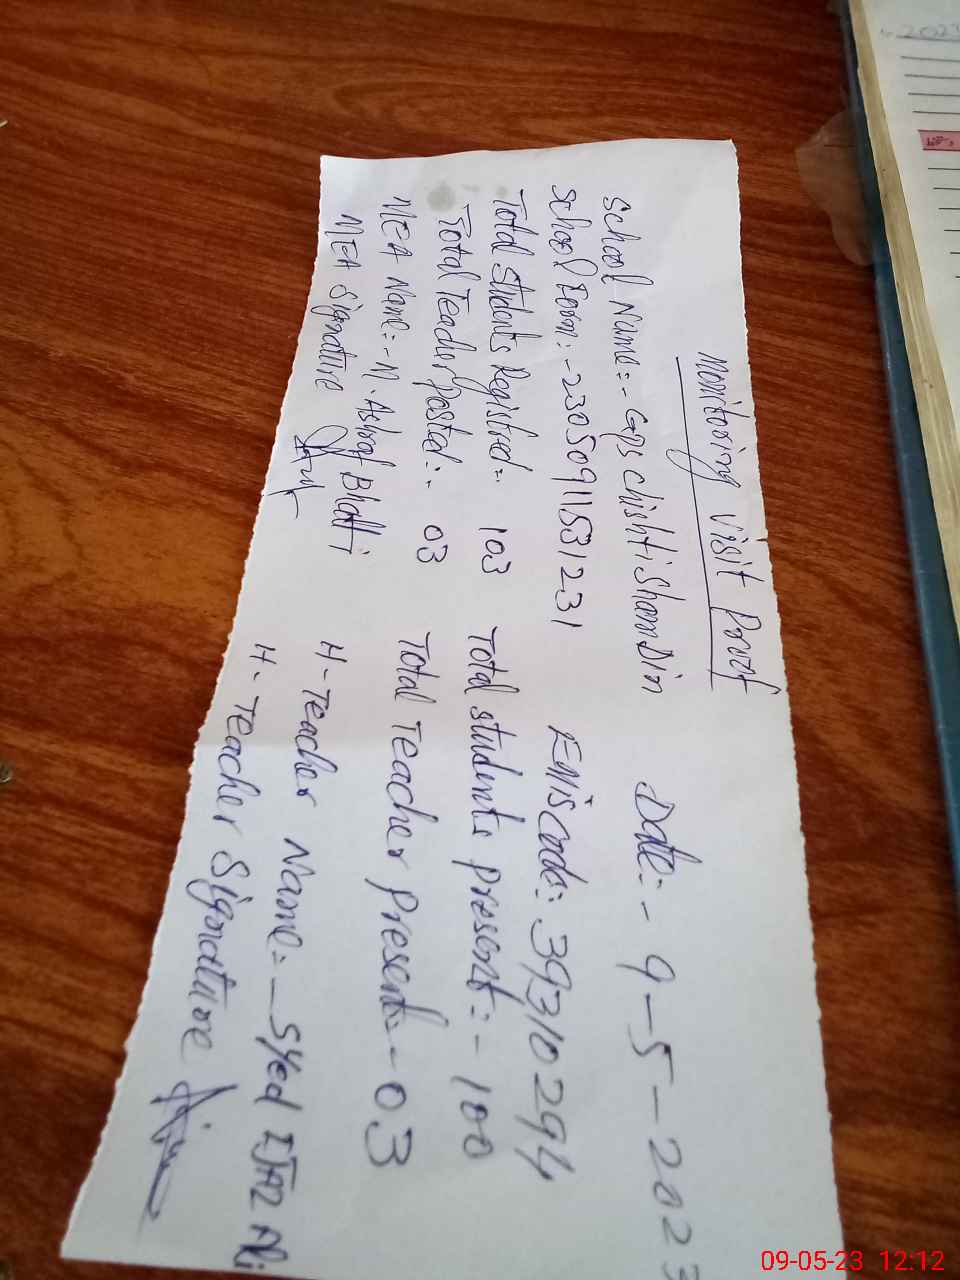 Monitoring Visit Proof
School Name:- GPS Chishti Sham Din Date:- 9-5-2023
School Form:- 23050911531231 Emis code: 39310294
Total Students Registred:- 103 Total students present:- 100
Total Teacher Posted:- 03 Total Teacher present:- 03
MEA Name:- M. Ashraf Bhatti H-Teacher Name:- Syed IJAZ Ali
MEA Signature H-Teacher Signature
2023
09-05-23 12:12